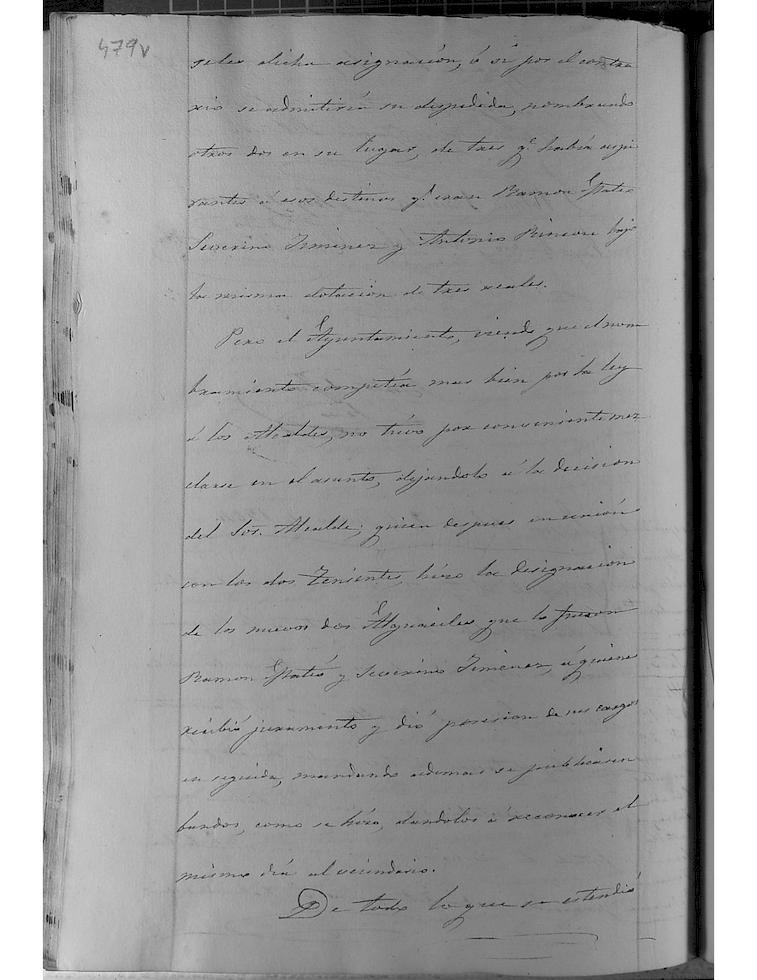 479v
seles dicha asignación, ó si por el contra
rio se admitiria su despedida, nombrando
otros dos en su lugar, de tres q.e habia aspi
rantes á esos destinos q.e eran Ramon
Severino Jimenez y Antonio Rincon bajo
la misma dotacion de tres reales.
Pero el Ayuntamiento, viendo que el nom
bramiento competía mas bien por la ley
á los Alcaldes, no tuvo por conveniente mez
clarse en el asunto, dejandolo á la decision
del Sor. Alcalde; quien despues en union
con los dos Tenientes, hizo la designacion
de los nuevos dos Alguaciles que lo fueron
Ramon y Severino Jimenez, á quienes
recibió juramento y dió posesion de sus cargos
en seguida, mandando ademas se publicasen
bandos, como se hizo, dandolos á reconocer el
mismo dia al vecindario.
De todo lo que se estendió